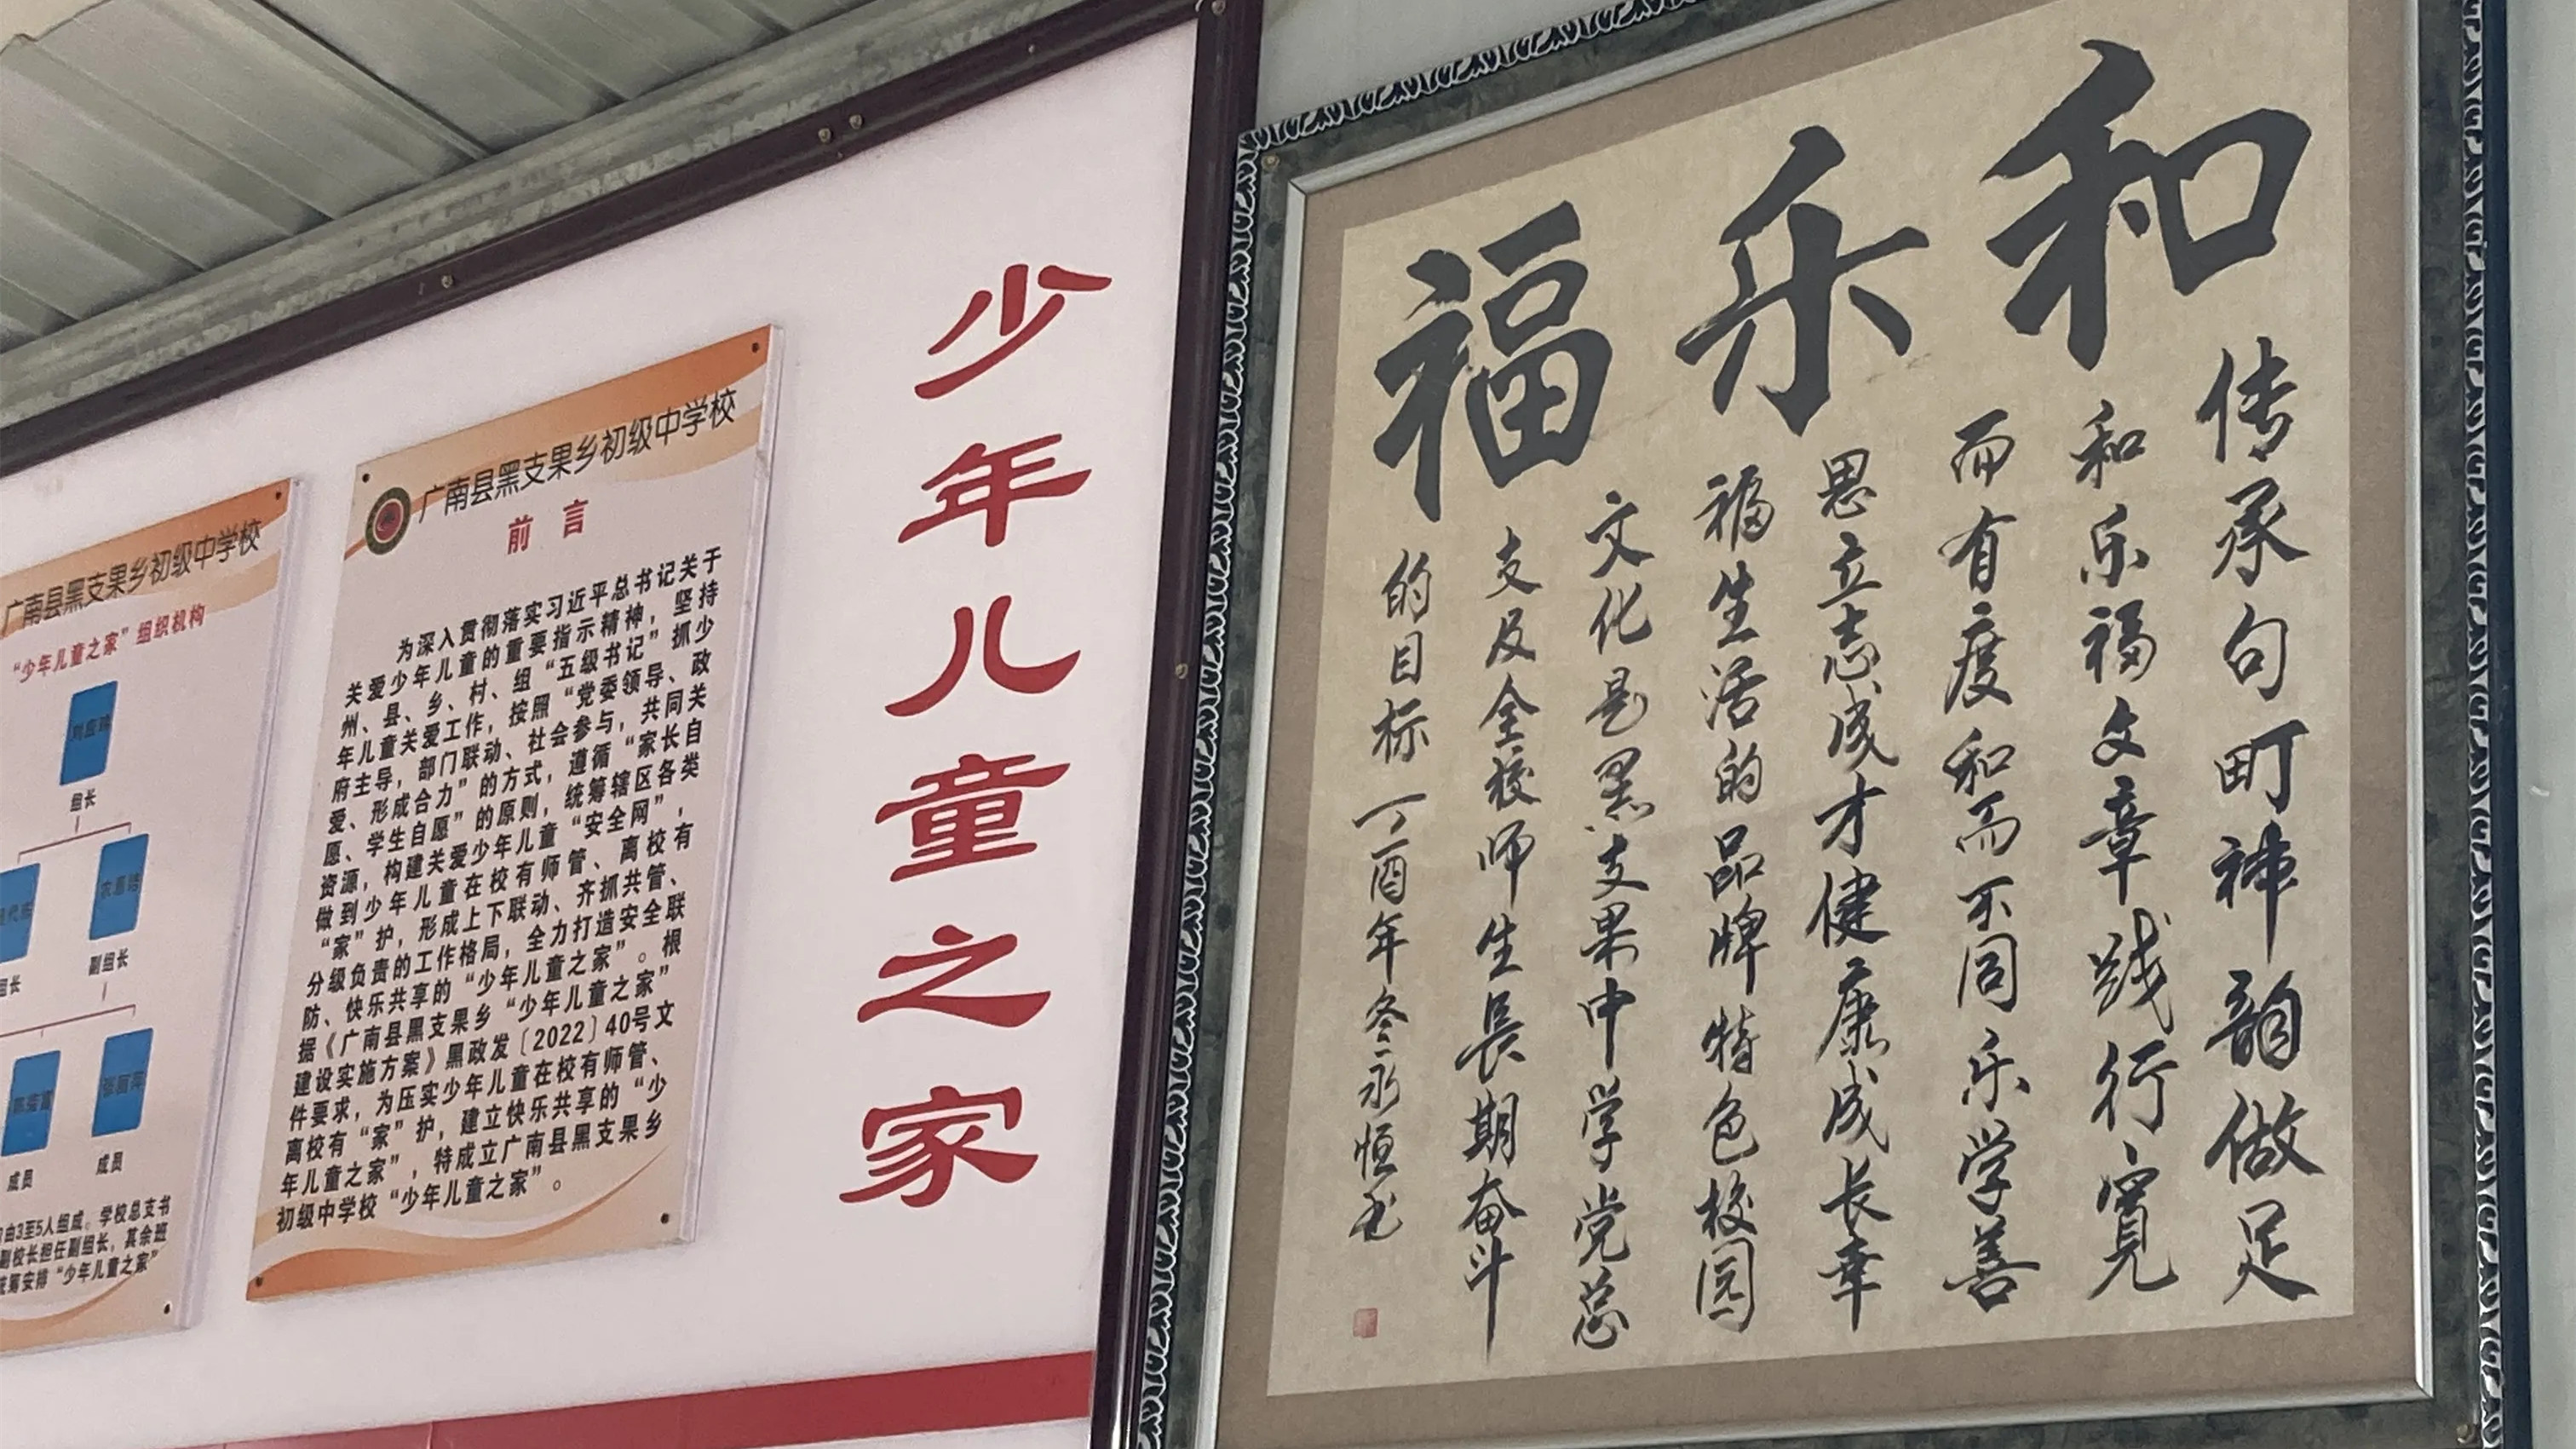 广南县黑支果乡初级中学校
“少年儿童之家”组织机构
组长
副组长
组长
成员
成员
由3至5人组成。学校总支书
副校长担任副组长，其余班
统筹安排“少年儿童之家”
广南县黑支果乡初级中学校
前言
为深入贯彻落实习近平总书记关于
关爱少年儿童的重要指示精神，坚持
州、县、乡、村、组“五级书记”抓少
年儿童关爱工作，按照“党委领导、政
府主导，部门联动、社会参与，共同关
爱、形成合力”的方式，遵循“家长自
愿、学生自愿”的原则，统筹辖区各类
资源，构建关爱少年儿童“安全网”，
做到少年儿童在校有师管、离校有
“家”护，形成上下联动、齐抓共管、
分级负责的工作格局，全力打造安全联
防、快乐共享的“少年儿童之家”。根
据《广南县黑支果乡“少年儿童之家”
建设实施方案》黑政发〔2022〕40号文
件要求，为压实少年儿童在校有师管、
离校有“家”护，建立快乐共享的“少
年儿童之家”，特成立广南县黑支果乡
初级中学校“少年儿童之家”。
少年儿童之家
和乐福
传承句町神韵做足
和乐福文章践行宽
而有度和而不同乐学善
思立志成才健康成长幸
福生活的品牌特色校园
文化是黑支果中学党总
支及全校师生長期奋斗
的目标 丁酉年冬永恒书